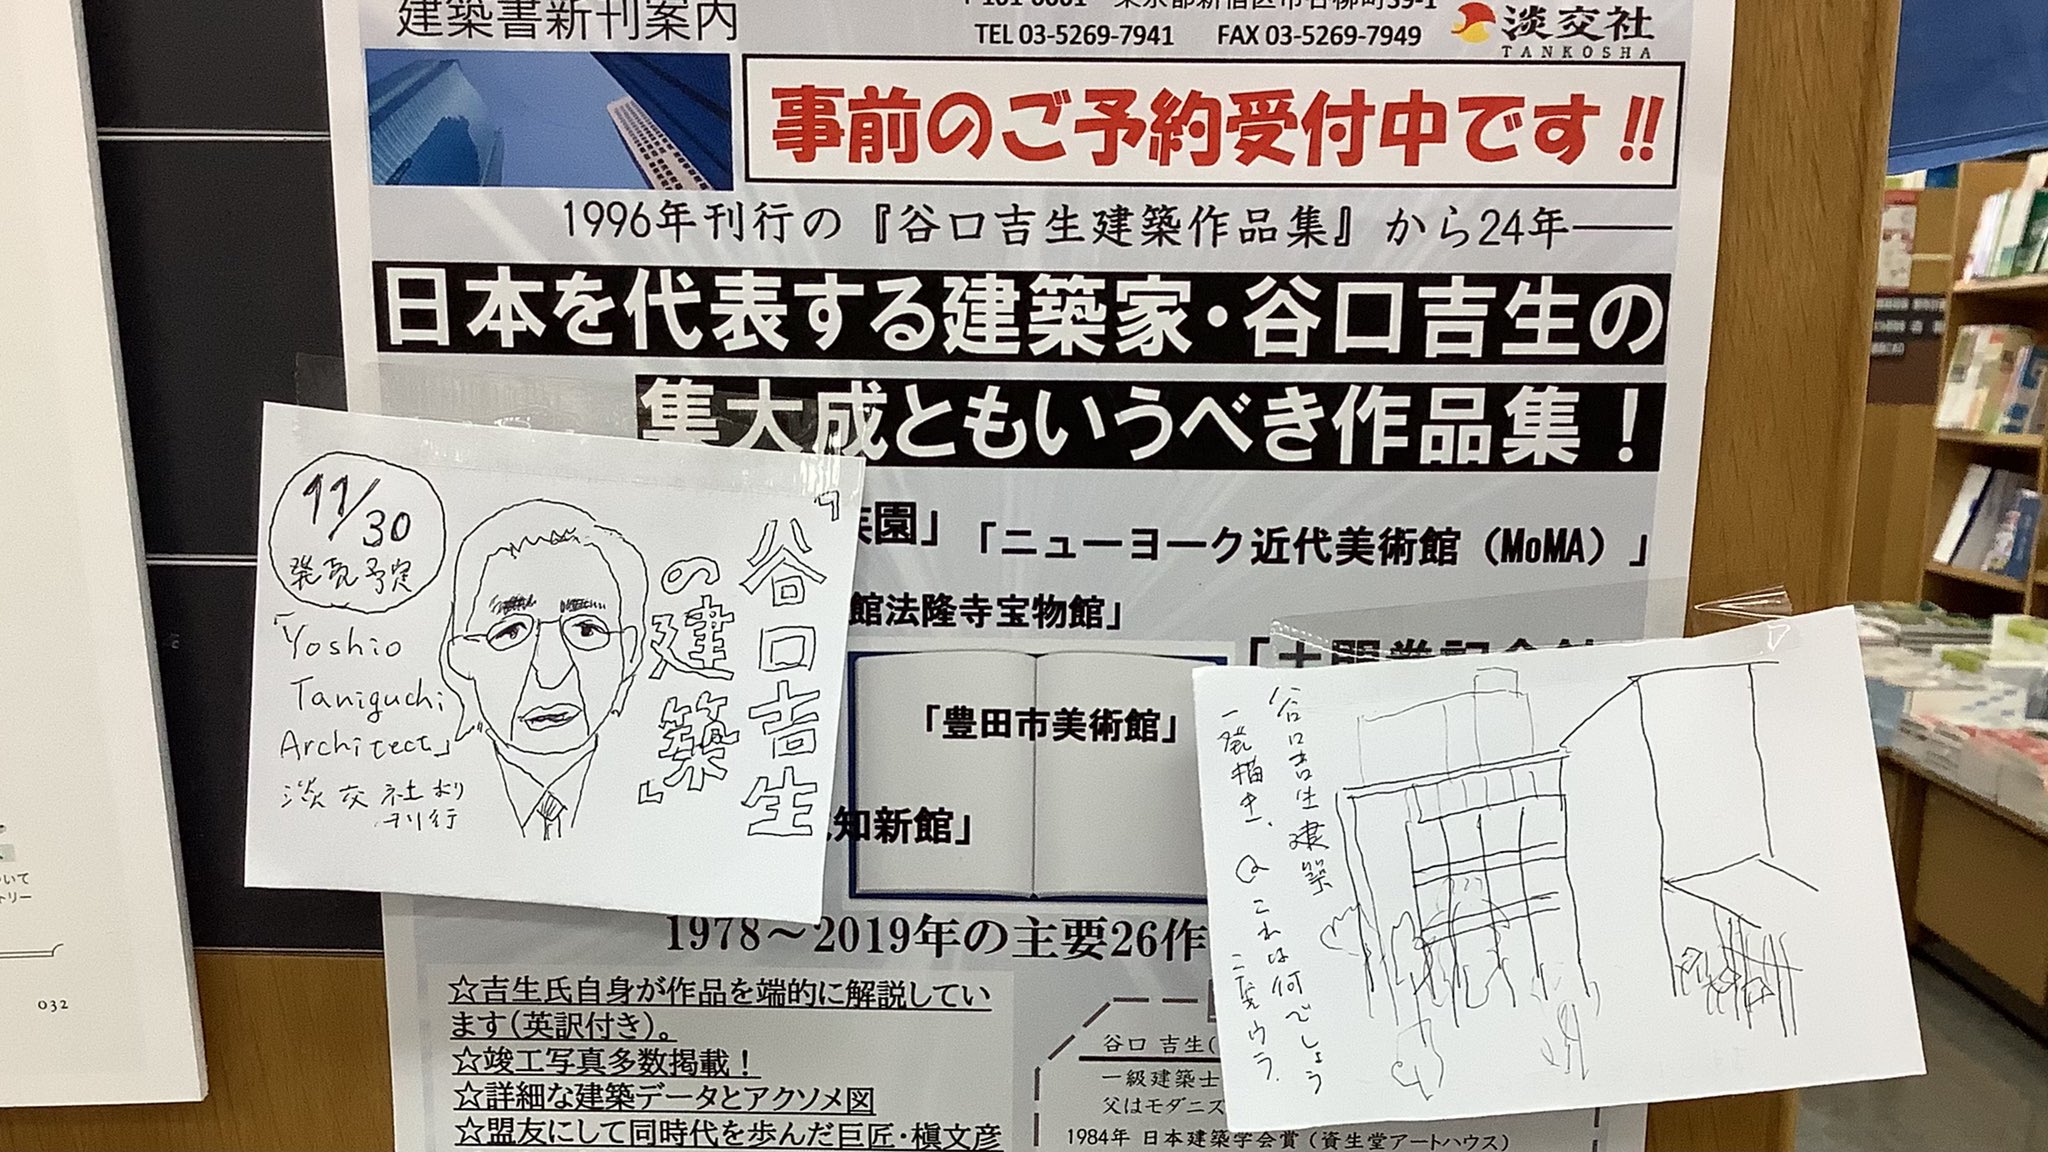 建築書新刊案内
TEL 03-5269-7941 FAX 03-5269-7949
淡交社
TANKOSHA
事前のご予約受付中です!!
1996年刊行の『谷口吉生建築作品集』から24年――
日本を代表する建築家・谷口吉生の
集大成ともいうべき作品集!
園」「ニューヨーク近代美術館(MoMA)」
館法隆寺宝物館」
「豊田市美術館」
知新館」
1978～2019年の主要26作
☆吉生氏自身が作品を端的に解説してい
ます(英訳付き)。
☆竣工写真多数掲載!
☆詳細な建築データとアクソメ図
☆盟友にして同時代を歩んだ巨匠・槇文彦
谷口 吉生(
一級建築士
父はモダニズ
1984年 日本建築学会賞(資生堂アートハウス)
11/30
発売予定
『谷口吉生
の建築』
「Yoshio
Taniguchi
Architect」
淡交社刊
刊行
谷口吉生建築
一発描き、Qこれは何でしょう
032